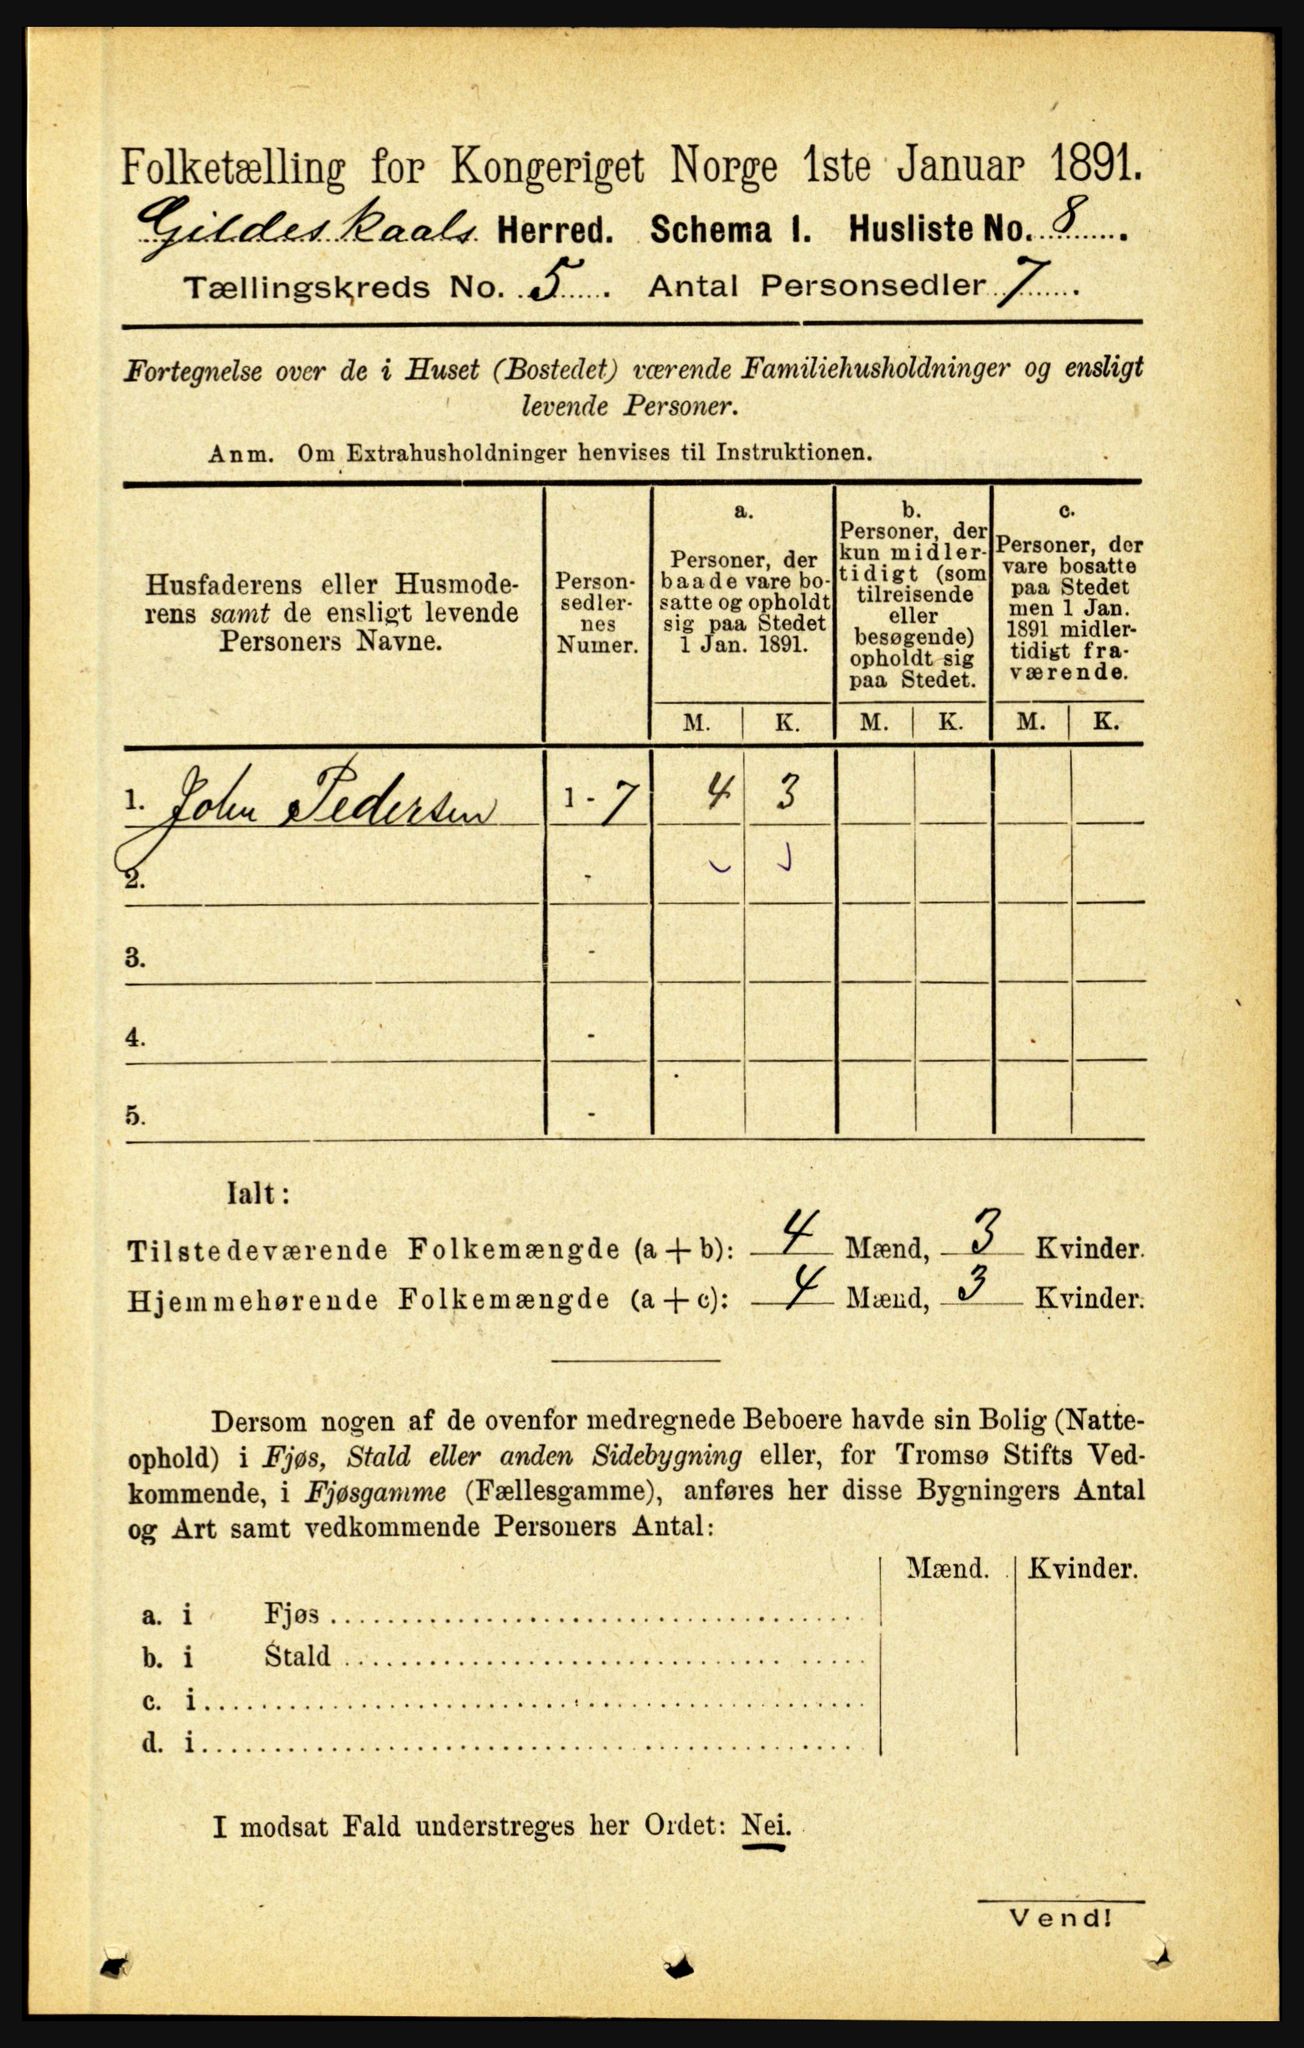 Folketælling for Kongeriget Norge 1ste Januar 1891.
Gildeskaals Herred. Schema 1. Husliste No. 8.
Tællingskreds No. 5. Antal Personsedler 7.
Fortegnelse over de i Huset (Bostedet) værende Familiehusholdninger og ensligt
levende Personer.
Anm. Om Extrahusholdninger henvises til Instruktionen.
Husfaderens eller Husmode-
rens samt de ensligt levende
Personers Navne.
Person-
sedler-
nes
Numer.
a.
Personer, der
baade vare bo-
satte og opholdt
sig paa Stedet
1 Jan. 1891.
b.
Personer, der
kun midler-
tidigt (som
tilreisende
eller
besøgende)
opholdt sig
paa Stedet.
c.
Personer, der
vare bosatte
paa Stedet
men 1 Jan.
1891 midler-
tidigt fra-
værende.
M. K. M. K. M. K.
1. John Pedersen 1 - 7 4 3
2. -
3. -
4. -
5. -
Ialt:
Tilstedeværende Folkemængde (a + b): 4 Mænd, 3 Kvinder.
Hjemmehørende Folkemængde (a + c): 4 Mænd, 3 Kvinder.
Dersom nogen af de ovenfor medregnede Beboere havde sin Bolig (Natte-
ophold) i Fjøs, Stald eller anden Sidebygning eller, for Tromsø Stifts Ved-
kommende, i Fjøsgamme (Fællesgamme), anføres her disse Bygningers Antal
og Art samt vedkommende Personers Antal:
Mænd. Kvinder.
a. i Fjøs
b. i Stald
c. i
d. i
I modsat Fald understreges her Ordet: Nei.
Vend!